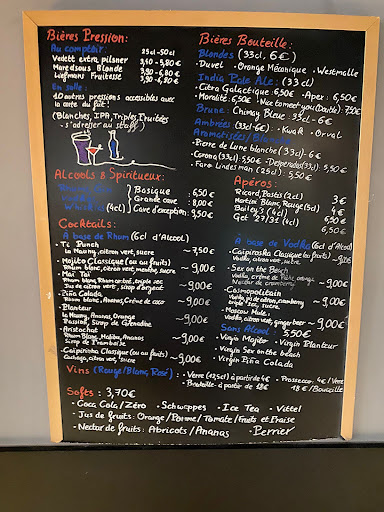 Bières Pression:
Au comptoir: 25cl-50cl
Vedett extra pilsner 3,40-5,80€
Maredsous Blonde 3,90-6,80€
Liefmans Fruitesse 3,90-6,80€
En salle:
10 autres pressions accessibles avec
la carte du fût!
(Blanches, IPA, Triples, Fruitées
- s'adresser au staff)
Alcools & Spiritueux:
Basique 6,50€
Grande cave 8,00€
Whiskies (4cl) Cave d'exception 9,50€
Cocktails:
A base de Rhum (6cl d'Alcool)
- Ti Punch
La Mauny, citron vert, sucre 7,50€
- Mojito Classique (ou au fruits)
Rhum blanc, citron vert, menthe, sucre 9,00€
- Mai Tai
Rhum blanc, Rhum ambré, triple sec
Jus de citron vert, sirop d'orgeat 9,00€
- Piña Colada
Rhum blanc, Ananas, Crème de coco 9,00€
- Planteur
La Mauny, Ananas, Orange
Passion, Sirop de Grenadine 9,00€
- Aristochat
Rhum Blanc, Malibu, Ananas
Sirop de Framboise 9,00€
- Caïpirinha Classique (ou au fruits)
Cachaça, citron vert, sucre 9,00€
Bières Bouteille:
Blondes (33cl, 6€)
- Duvel - Orange Mécanique - Westmalle
India Pale Ale: (33cl)
- Citra Galactique: 6,50€ - Apex: 6,50€
- Moralité: 6,50€ - Nice to meet you (Dudite) 7,50€
Brune: Chimay Bleue (33cl) - 6€
Ambrées (33cl-6€): - Kwak - Orval
Aromatisées/Blanche
- Pierre de Lune blanche (33cl) - 6€
- Corona (33cl): 5,50€ - Desperados (33cl): 5,50€
- Faro Lindesman (25cl): 5,50€
Apéros:
Ricard, Pastis (2cl) 3€
Martini Blanc, Rouge (5cl) 4€
Bailey's (4cl) 6,50€
Get 27/31 (4cl) 6,50€
A base de Vodka (6cl d'Alcool)
- Caïpiroska Classique (ou au fruits)
Vodka, citron vert, sucre 9,00€
- Sex on the Beach
Vodka, crème de Pêche, orange
Nectar de cranberry 9,00€
- Cosmopolitain
Vodka, jus de citron, cranberry
triple sec, sucre 9,00€
- Moscow Mule:
Vodka, citron vert, ginger beer 9,00€
Sans Alcool: 5,50€
- Virgin Mojito - Virgin Planteur
- Virgin Sex on the beach
- Virgin Piña Colada
Vins (Rouge/Blanc, Rosé): - Verre (12,5cl) à partir de 4€ - Prosecco: 4€/Verre
- Bouteille à partir de 18€ 18€/Bouteille
Softs: 3,70€
- Coca Cola/Zéro - Schweppes - Ice Tea - Vittel
- Jus de fruits: Orange/Pomme/Tomate/Fruits et Fraise
- Nectar de fruits: Abricots/Ananas - Perrier